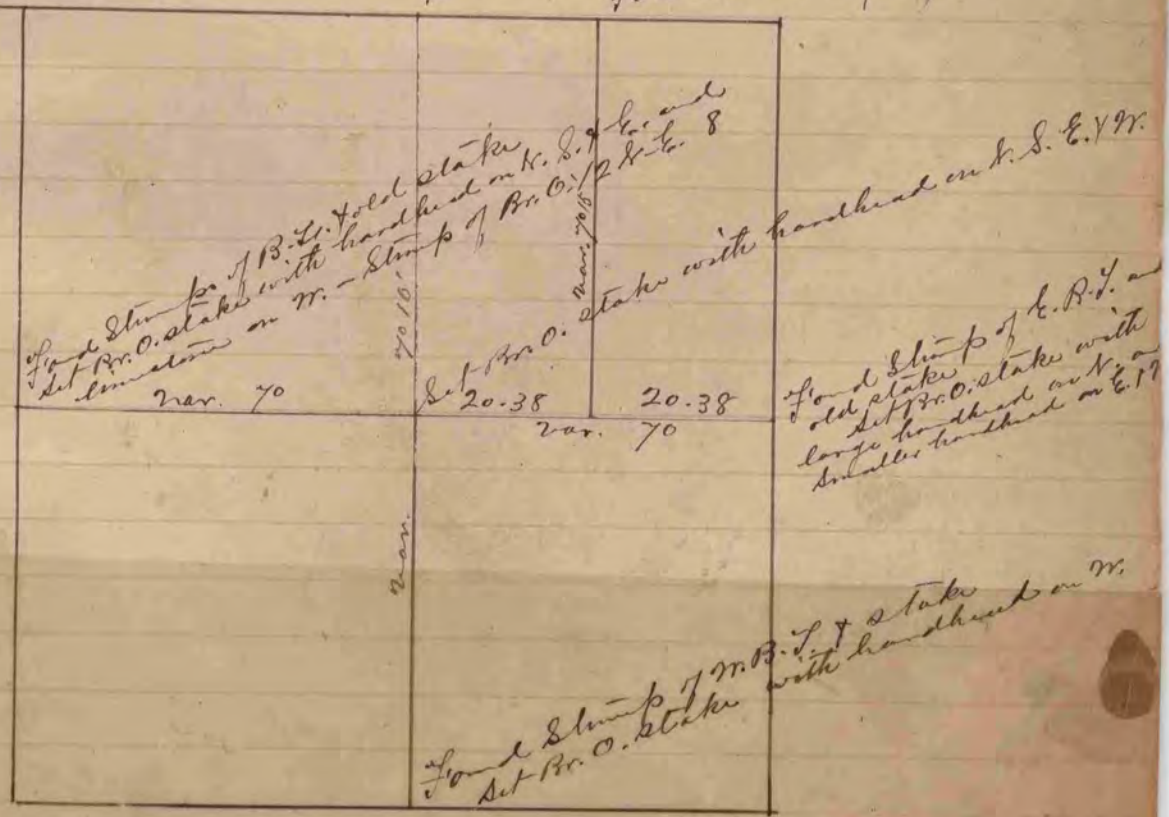 Found Stumps of B. Ts. & old stake
Set Br. O. stake with hardhead on N. S. & E. and
limestone on W. - Stump of Br. O. 12 N-E. 8
Var. 70
Var.
7°15'
Var. 7°15'
Set Br. O. stake with hardhead on N. S. E. & W.
20.38
20.38
Var. 70
Found Stump of E. B. T. and
old stake
Set Br. O. stake with
large hardhead on N. a
smaller hardhead on E. 12
Found Stump of W. B. T. & stake
Set Br. O. stake with hardhead on W.